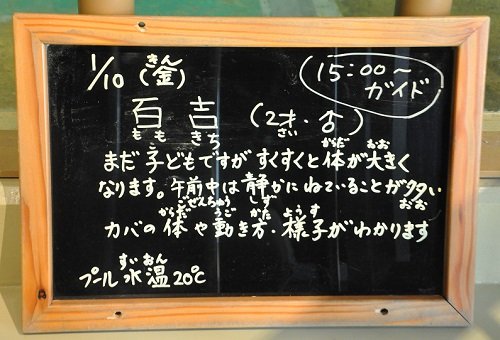 1/10 (金) 15:00〜
きん ガイド
百吉 (2才・♂)
ももきち さい
からだ おお
まだ子どもですがすくすくと体が大きく
なります。午前中は静かにねていることが多い
ごぜんちゅう しず おお
からだ うご かた ようす
カバの体や動き方・様子がわかります
すいおん
プール水温20℃